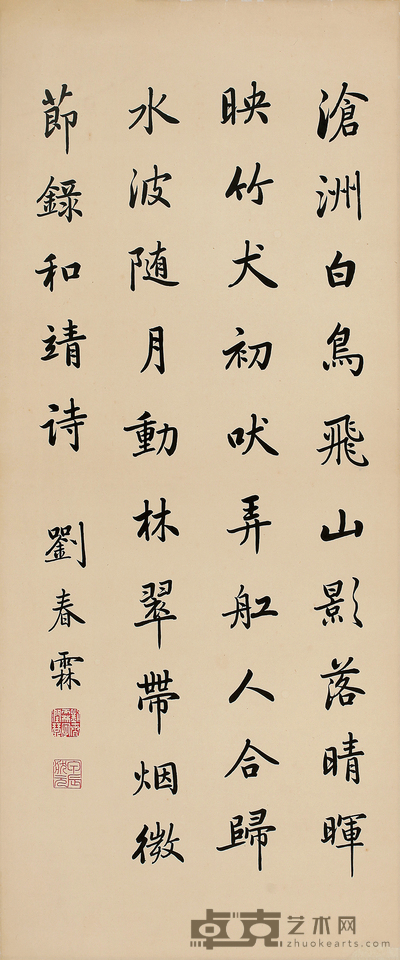 滄洲白鳥飛山影落晴暉
映竹犬初吠弄舡人合歸
水波随月動林翠帶烟微
節錄和靖诗 劉春霖
卓克艺术网
zhuokearts.com